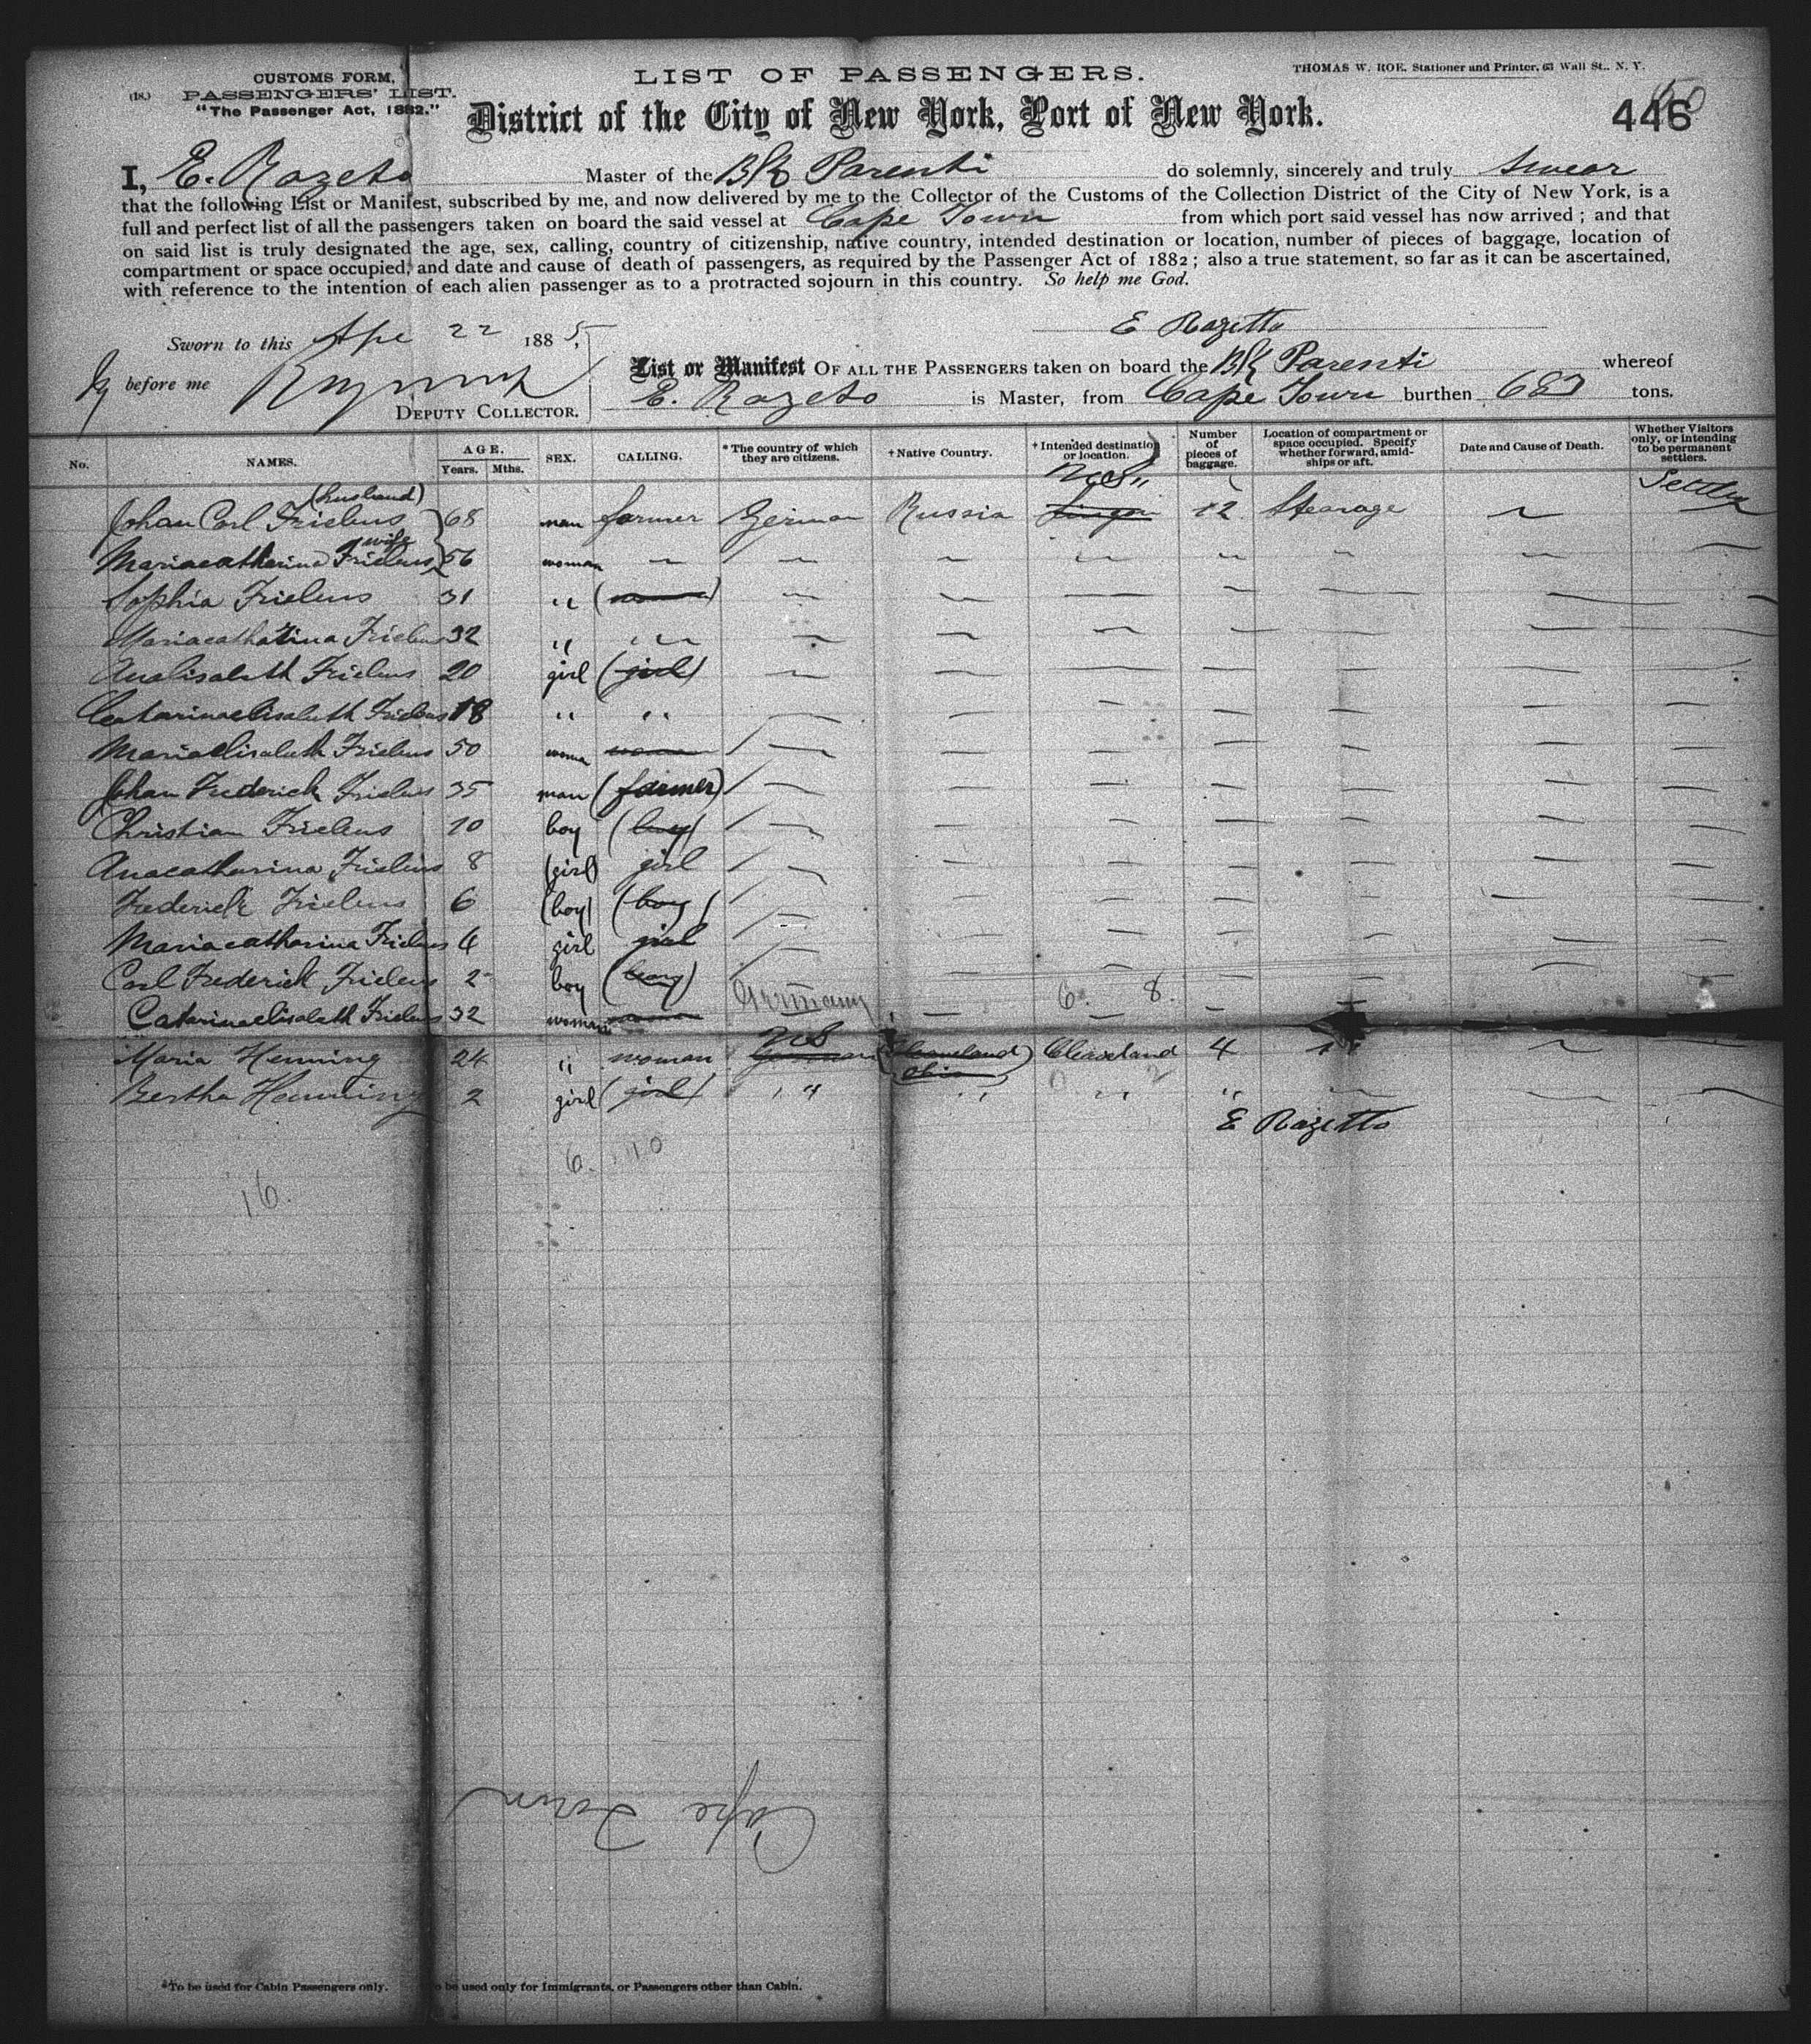 CUSTOMS FORM, LIST OF PASSENGERS. THOMAS W. ROE, Stationer and Printer, 63 Wall St., N. Y.
(18.) PASSENGERS' LIST.
"The Passenger Act, 1882." District of the City of New York, Port of New York. 446
I, E. Razeto Master of the Bk Parenti do solemnly, sincerely and truly swear
that the following List or Manifest, subscribed by me, and now delivered by me to the Collector of the Customs of the Collection District of the City of New York, is a
full and perfect list of all the passengers taken on board the said vessel at Cape Town from which port said vessel has now arrived ; and that
on said list is truly designated the age, sex, calling, country of citizenship, native country, intended destination or location, number of pieces of baggage, location of
compartment or space occupied, and date and cause of death of passengers, as required by the Passenger Act of 1882 ; also a true statement, so far as it can be ascertained,
with reference to the intention of each alien passenger as to a protracted sojourn in this country. So help me God.
E Razetto
Sworn to this Apr 22 1885,
before me
DEPUTY COLLECTOR.
List or Manifest OF ALL THE PASSENGERS taken on board the Bk Parenti whereof
E. Razeto is Master, from Cape Town burthen 683 tons.
No. NAMES. AGE. Years. Mths. SEX. CALLING. *The country of which they are citizens. †Native Country. †Intended destination or location. Number of pieces of baggage. Location of compartment or space occupied. Specify whether forward, amidships or aft. Date and Cause of Death. Whether Visitors only, or intending to be permanent settlers.
(husband) U.S.
Johan Carl Frielens 68 man farmer German Russia 12 Stearage
wife
Mariacatharina Frielens 56 woman
Sophia Frielens 31 " (woman)
Mariacathatina Frielens 32 " "
Analisabeth Frielens 20 girl (girl)
Catarinaelisabeth Frielens 18 " "
Mariaelisabeth Frielens 50 woman woman
Johan Frederick Frielens 35 man (farmer)
Christian Frielens 10 boy (boy)
Anacatharina Frielens 8 (girl) girl
Frederick Frielens 6 (boy) (boy)
Mariacatharina Frielens 4 girl girl
Carl Frederick Frielens 2 boy (boy)
Germany 6. 8.
Catarinaelisabeth Frielens 32 woman woman
US
Maria Henning 24 " woman German (Cleaveland Ohio) Cleaveland 4 "
Bertha Henning 2 girl (girl) " " " "
E Razetto
6. 10
16.
Cape Town
*To be used for Cabin Passengers only. be used only for Immigrants, or Passengers other than Cabin.